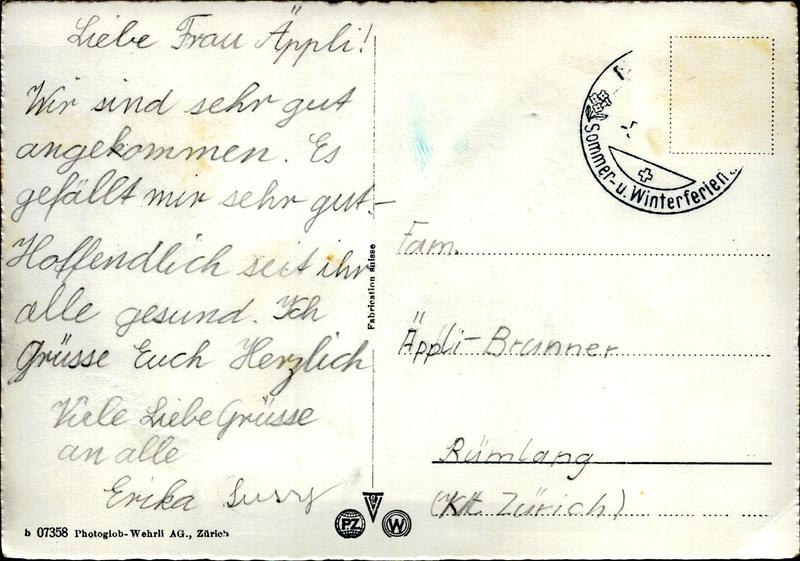 Liebe Frau Äppli!
Wir sind sehr gut
angekommen. Es
gefällt mir sehr gut.-
Hoffendlich seit ihr
alle gesund. Ich
Grüsse Euch Herzlich
Viele Liebe Grüsse
an alle
Erika
Fabrication suisse
Sommer- u. Winterferien
Fam.
Äppli-Brunner
Rümlang
(Kt. Zürich)
PZ
W
b 07358 Photoglob-Wehrli AG., Zürich